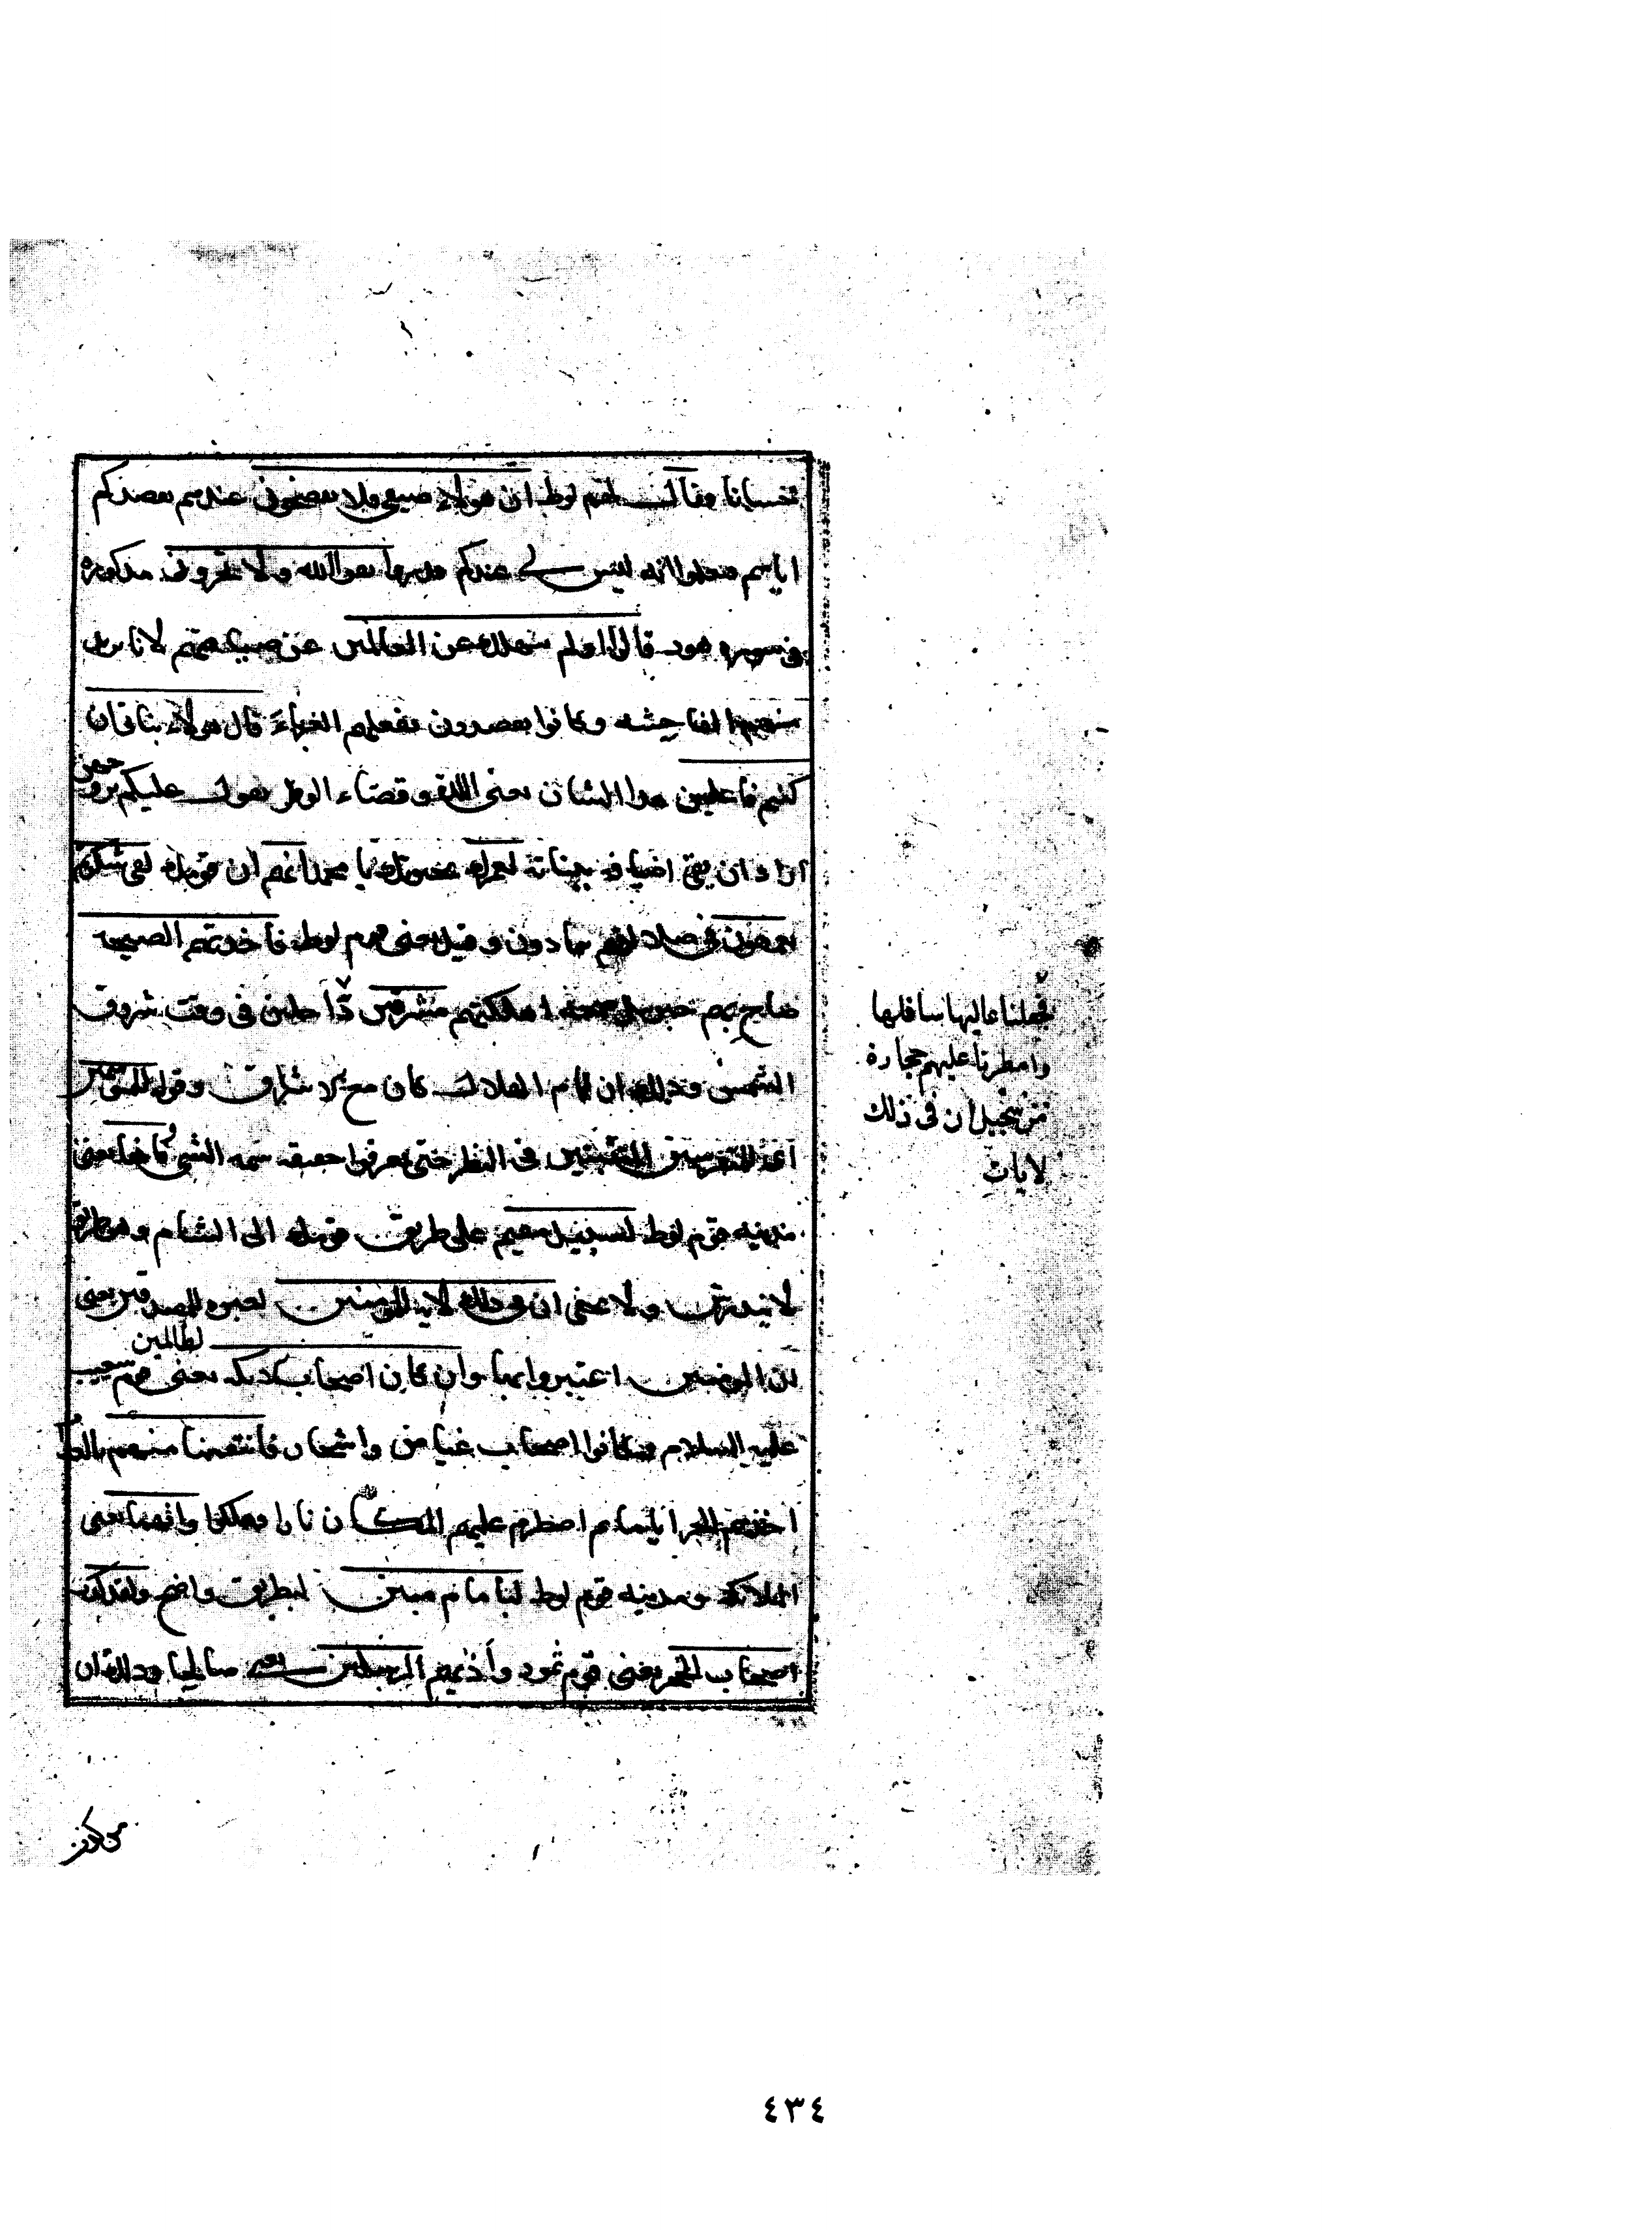 حسانا فقال لهم لوط ان هولاء ضيفي فلا تفضحون عندهم بقصدكم
اياهم فتعلموا انه ليس لي عندكم قدر واتقوا الله ولا تخزون مذكورة
في سورة هود قالوا اولم ننهك عن العالمين عن لانا نريد
منهم الفاحشة وكانوا يقصدون بفعلهم الغرباء قال هولاء بناتي ان
كنتم فاعلين هذا الشان يعني اللذة وقضاء الوطر يقول عليكم بتزوجهن
اراد ان يقي اضيافه ببناته لعمرك بحيوتك يا محمد انهم ان قومك لفي سكرتهم
يعمهون في ضلالتهم يتمادون وقيل يعني قوم لوط فاخذتهم الصيحة
صاح بهم جبريل صيحة اهلكتهم مشرقين داخلين في وقت شروق
الشمس وذلك ان تمام الهلاك كان مع الاشراق وقوله للمتوسمين
اي المتفرسين المتثبتين في النظر حتى يعرفوا حقيقة سمة الشي وانها يعني
مدينة قوم لوط لبسبيل مقيم على طريق قومك الى الشام وهو طريق
لا يندرس ولا يخفى ان في ذلك لاية للمومنين لعبرة للمصدقين يعني
ان المومنين اعتبروا بها وان كان اصحاب الايكة يعني قوم شعيب
لظالمين
عليه السلام وكانوا اصحاب غياض واشجار فانتقمنا منهم بالعذاب
اخذهم الحر اياما ثم اضطرم عليهم المكان نارا فهلكوا وانهما يعني
الايكة ومدينة قوم لوط لبامام مبين لبطريق واضح ولقد كذب
اصحاب الحجر يعني قوم ثمود واذيتهم المرسلين يعني صالحا وذلك ان
فجعلنا عاليها سافلها
وامطرنا عليهم حجارة
من سجيل ان في ذلك
لايات
من كذب
٤٣٤